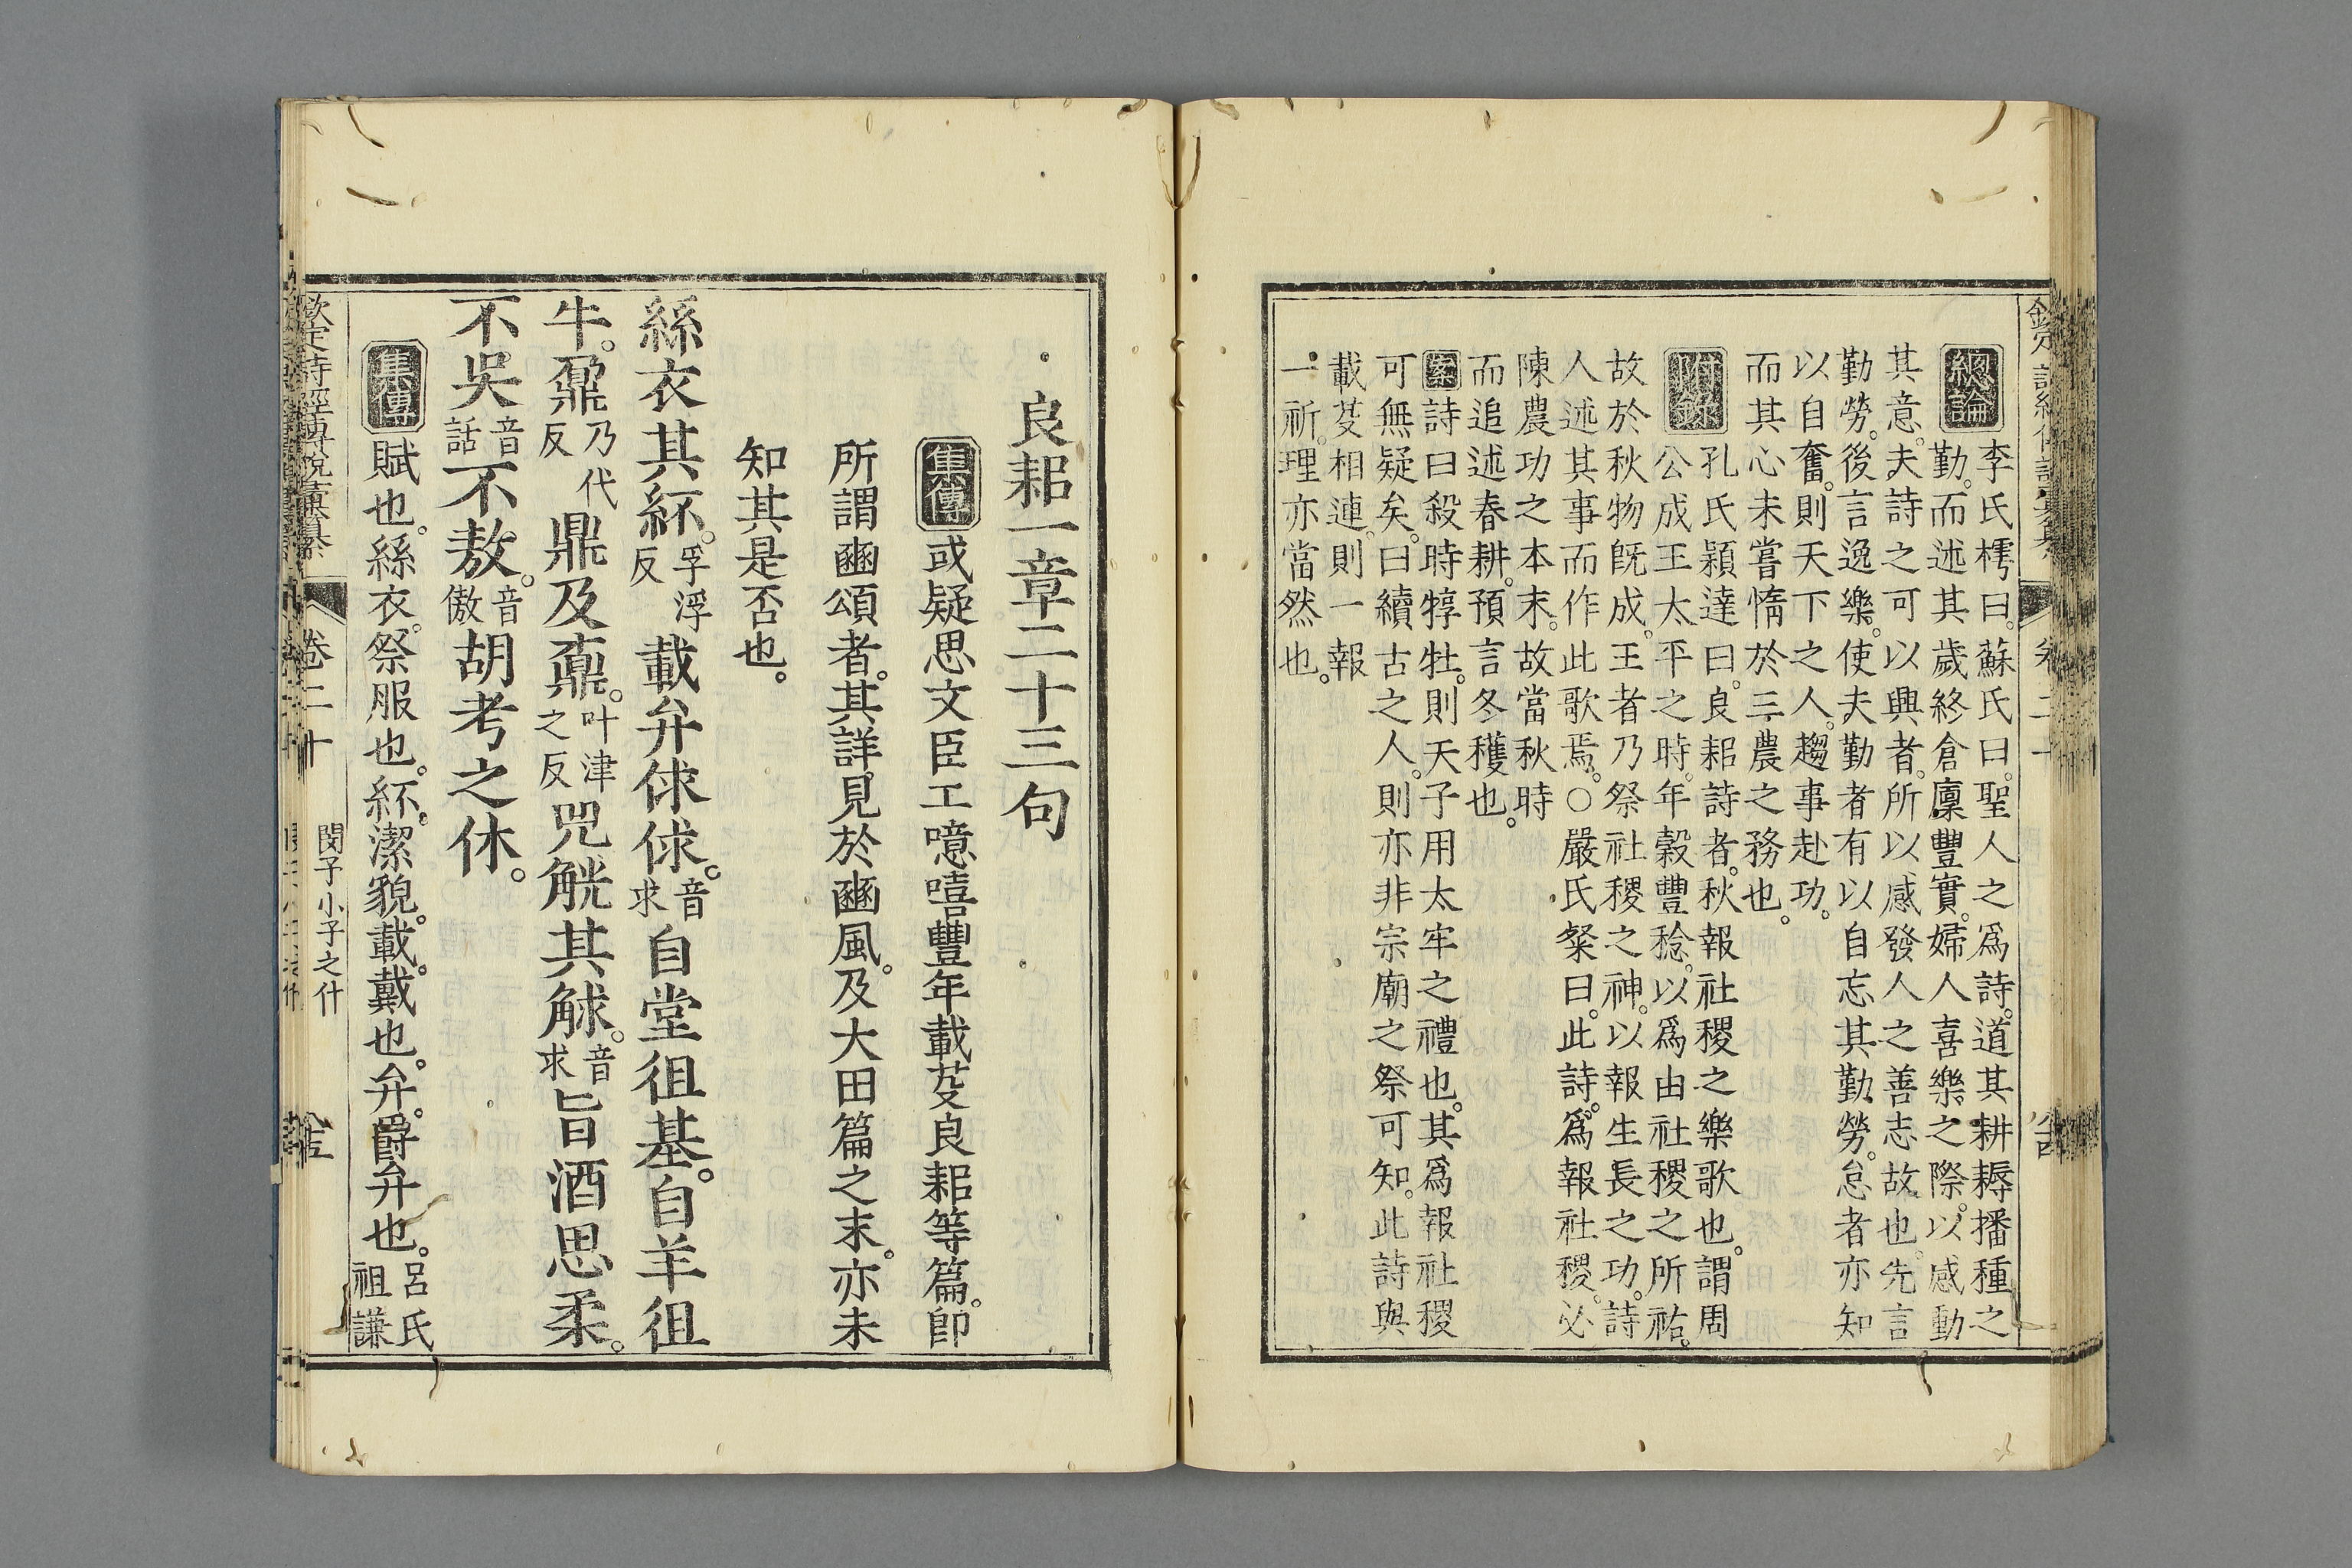 總論 李氏樗曰。蘇氏曰。聖人之爲詩。道其耕耨播種之
勤。而述其歲終倉廩豐實。婦人喜樂之際。以感動
其意。夫詩之可以興者。所以感發人之善志故也。先言
勤勞。後言逸樂。使夫勤者有以自忘其勤勞。怠者亦知
以自奮。則天下之人。趨事赴功。
而其心未嘗惰於三農之務也。
附錄 孔氏穎達曰。良耜詩者。秋報社稷之樂歌也。謂周
公成王太平之時。年穀豐稔。以爲由社稷之所祐。
故於秋物旣成。王者乃祭社稷之神。以報生長之功。詩
人述其事而作此歌焉。○嚴氏粲曰。此詩。爲報社稷。必
陳農功之本末。故當秋時
而追述春耕。預言冬穫也。
案 詩曰殺時犉牡。則天子用太牢之禮也。其爲報社稷
可無疑矣。曰續古之人。則亦非宗廟之祭可知。此詩與
載芟相連。則一報
一祈。理亦當然也。
良耜一章二十三句
集傳 或疑思文臣工噫嘻豐年載芟良耜等篇。卽
所謂豳頌者。其詳見於豳風。及大田篇之末。亦未
知其是否也。
絲衣其紑。孚浮反載弁俅俅。音求自堂徂基。自羊徂
牛。鼐乃代反鼎及鼒。叶津之反兕觥其觩。音求旨酒思柔。
不吳音話不敖。音傲胡考之休。
集傳 賦也。絲衣。祭服也。紑。潔貌。載。戴也。弁。爵弁也。呂氏祖謙
欽定詩經傳說彙纂 卷二十 閔子小子之什